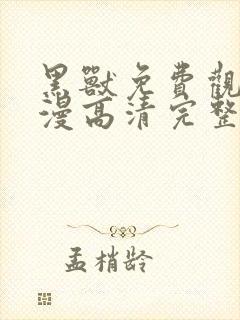 黑獸免費觀
漫高清完整
孟梢龄